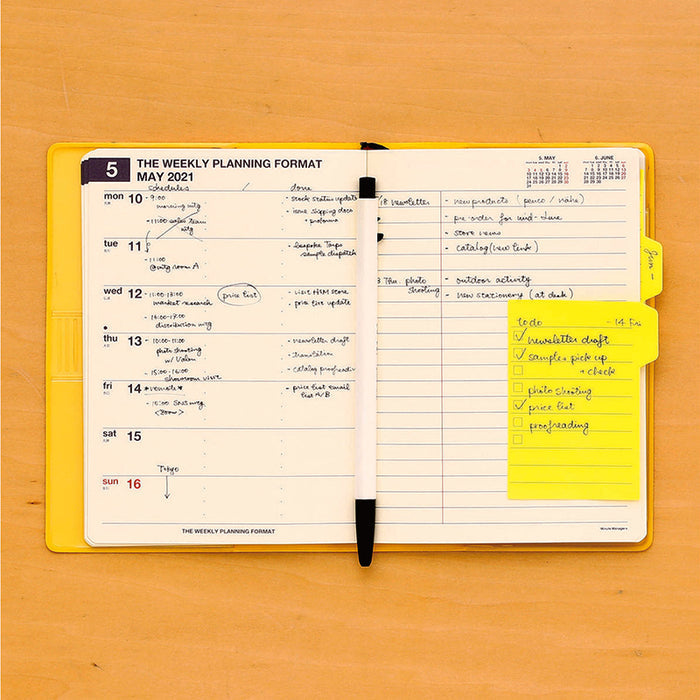 5
THE WEEKLY PLANNING FORMAT
MAY 2021
schedules / done
mon 10
- 9:00
morning mtg
- 11:00 sales team
mtg
- stock status update
- issue shipping docs
+ proforma
tue 11
- 11:00
@mtg room A
- bespoke
sample dispatch
wed 12
- 11:00-13:00
market research
distribution mtg
price list
- visit store
- price list update
thu 13
- 10:00-11:00
photo shooting
w/
- 15:00-16:00
showroom visit
- newsletter draft
- translation
- catalog proofreading
fri 14
*remote*
- 10:00 mtg
<zoom>
- price list email
list A/B
sat 15
sun 16
Tokyo
THE WEEKLY PLANNING FORMAT
5. MAY
6. JUNE
18 newsletter
- new products (penco / hahe)
- pre order for mid-June
- store news
- catalog (new link)
Thu. photo
shooting
- outdoor activity
- new stationery (at desk)
Jun -
to do - 14 Fri
newsletter draft
samples pick up
+ check
photo shooting
price list
proofreading